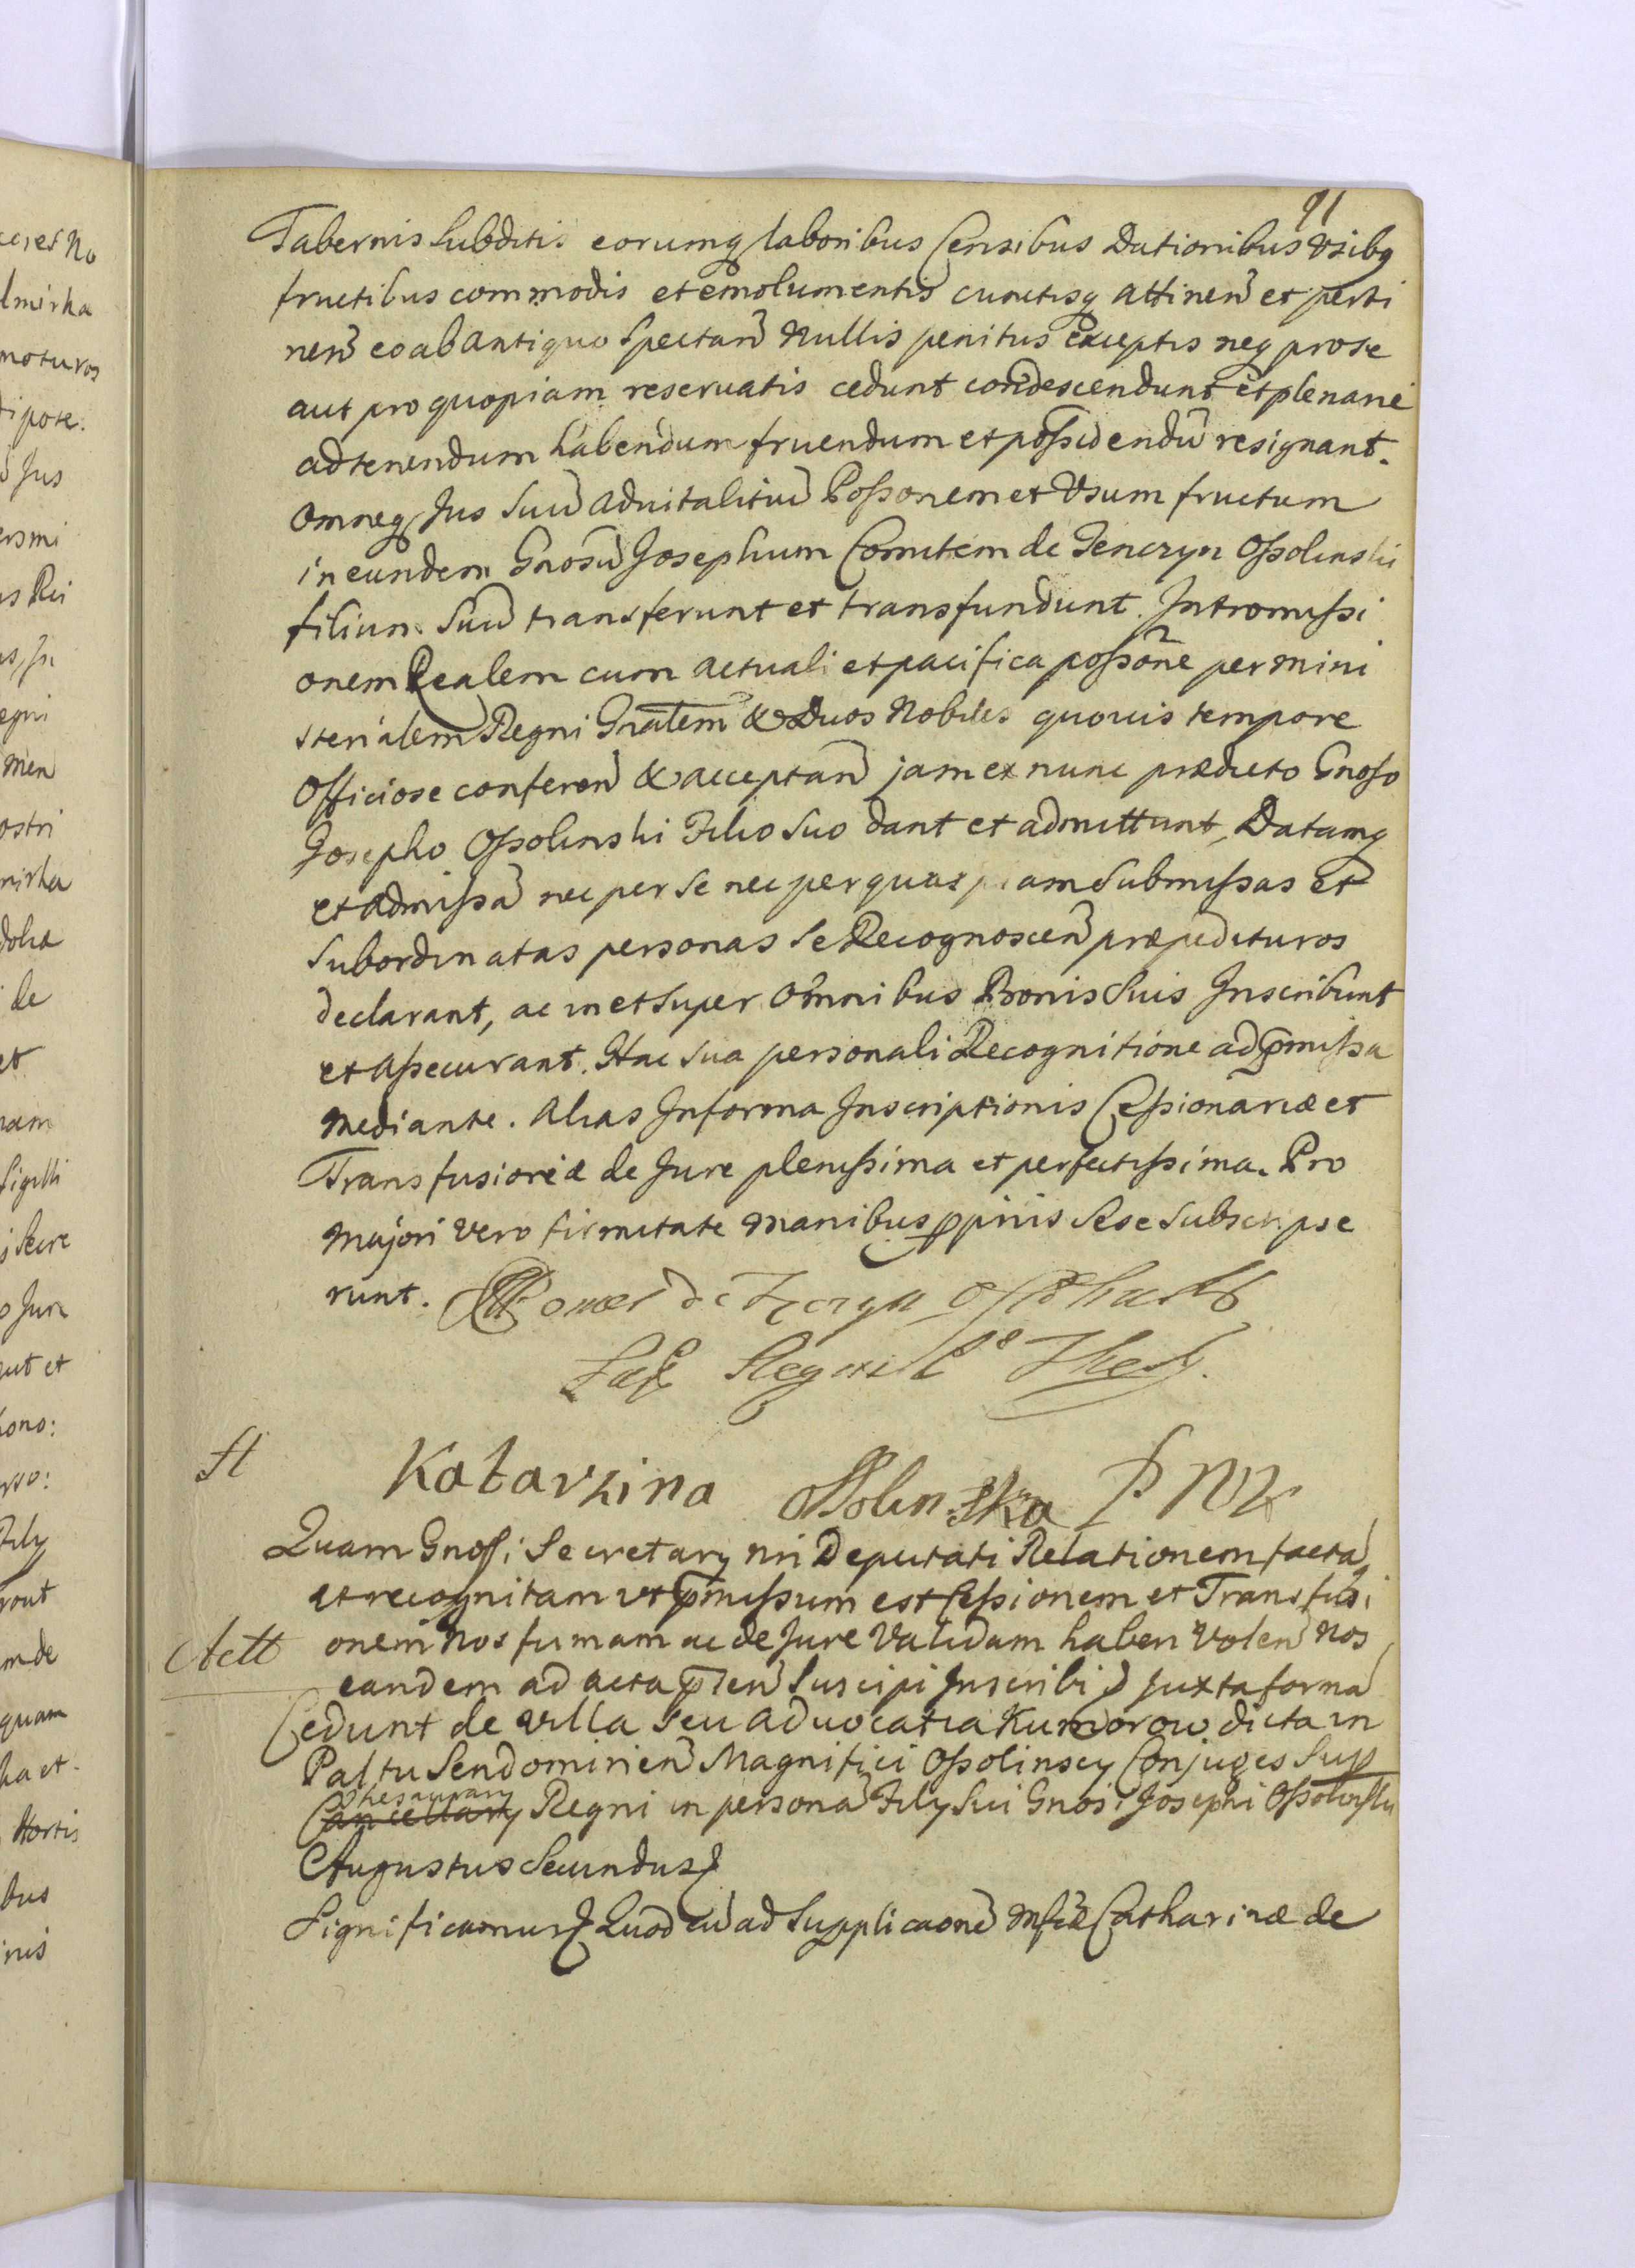 91
Tabernis Subditis eorumq laboribus Censibus Dationibus Vsibq
fructibus commodis et emolumentis cunctisq attinen et perti
nen eo ab antiquo Spectan Nullis penitus exceptis neq pro se
aut pro quopiam reservatis cedunt condescendunt et plenarie
ad tenendum habendum fruendum et possidendu resignant.
Omneq Jus Suu aduitalitiu Possonem et Vsum fructum
in eundem Gnosu Josephum Comitem de Tenczyn Ossolinski
filium Suu transferunt et transfundunt. Intromissi
onem Realem cum actuali et pacifica possone per Mini
sterialem Regni Gnalem & Duos Nobiles quovis tempore
Officiose conferen & acceptan jam ex nunc prædicto Gnoso
Josepho Ossolinski Filio Suo dant et admittunt, Datamq
et admissa nec per se nec per quaspiam Submissas et
Subordinatas personas Se Recognoscen præpedituros
declarant, ac in et Super Omnibus Bonis Suis Inscribunt
et assecurant. Hac sua personali Recognitione ad pmissa
Mediante. Alias In forma Inscriptionis Cessionariæ et
Transfusioriæ de Jure plenissima et perfectissima. Pro
Majori vero firmitate Manibus ppriis Sese Subscripse
runt.
Katarzina Ossolinska P N K
Quam Gnosi Secretarij nri Deputati Relationem facta
et recognitam ut pmissum est Cessionem et Transfusi
onem Nos firmam ac de Jure Validam haberi Volen Nos
Actt
eandem ad acta pnten Suscipi Inscribi Juxta forma
Cedunt de Villa Seu aduocatia Kumorow dicta in
Paltu Sendomirien Magnifici Ossolinscy Conjuges Sup
Thesaurarij
Cancellarij Regni in persona Filij Sui Gnosi Josephi Ossolinski
Augustus Secundus
Significamus Quod cu ad Supplicaone Mfcæ Catharinæ de